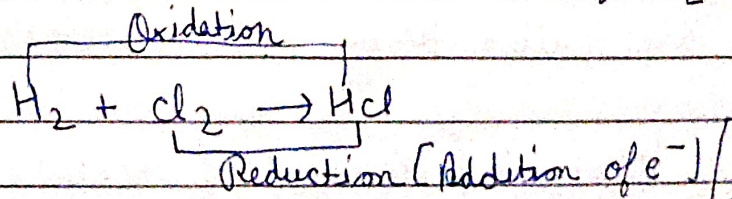 Oxidation
H₂ + Cl₂ → HCl
Reduction [Addition of e⁻]